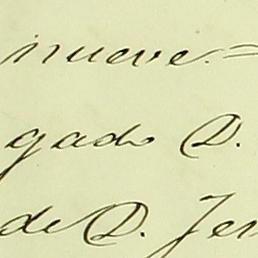 nueve.=
gado D.
de D. Jer